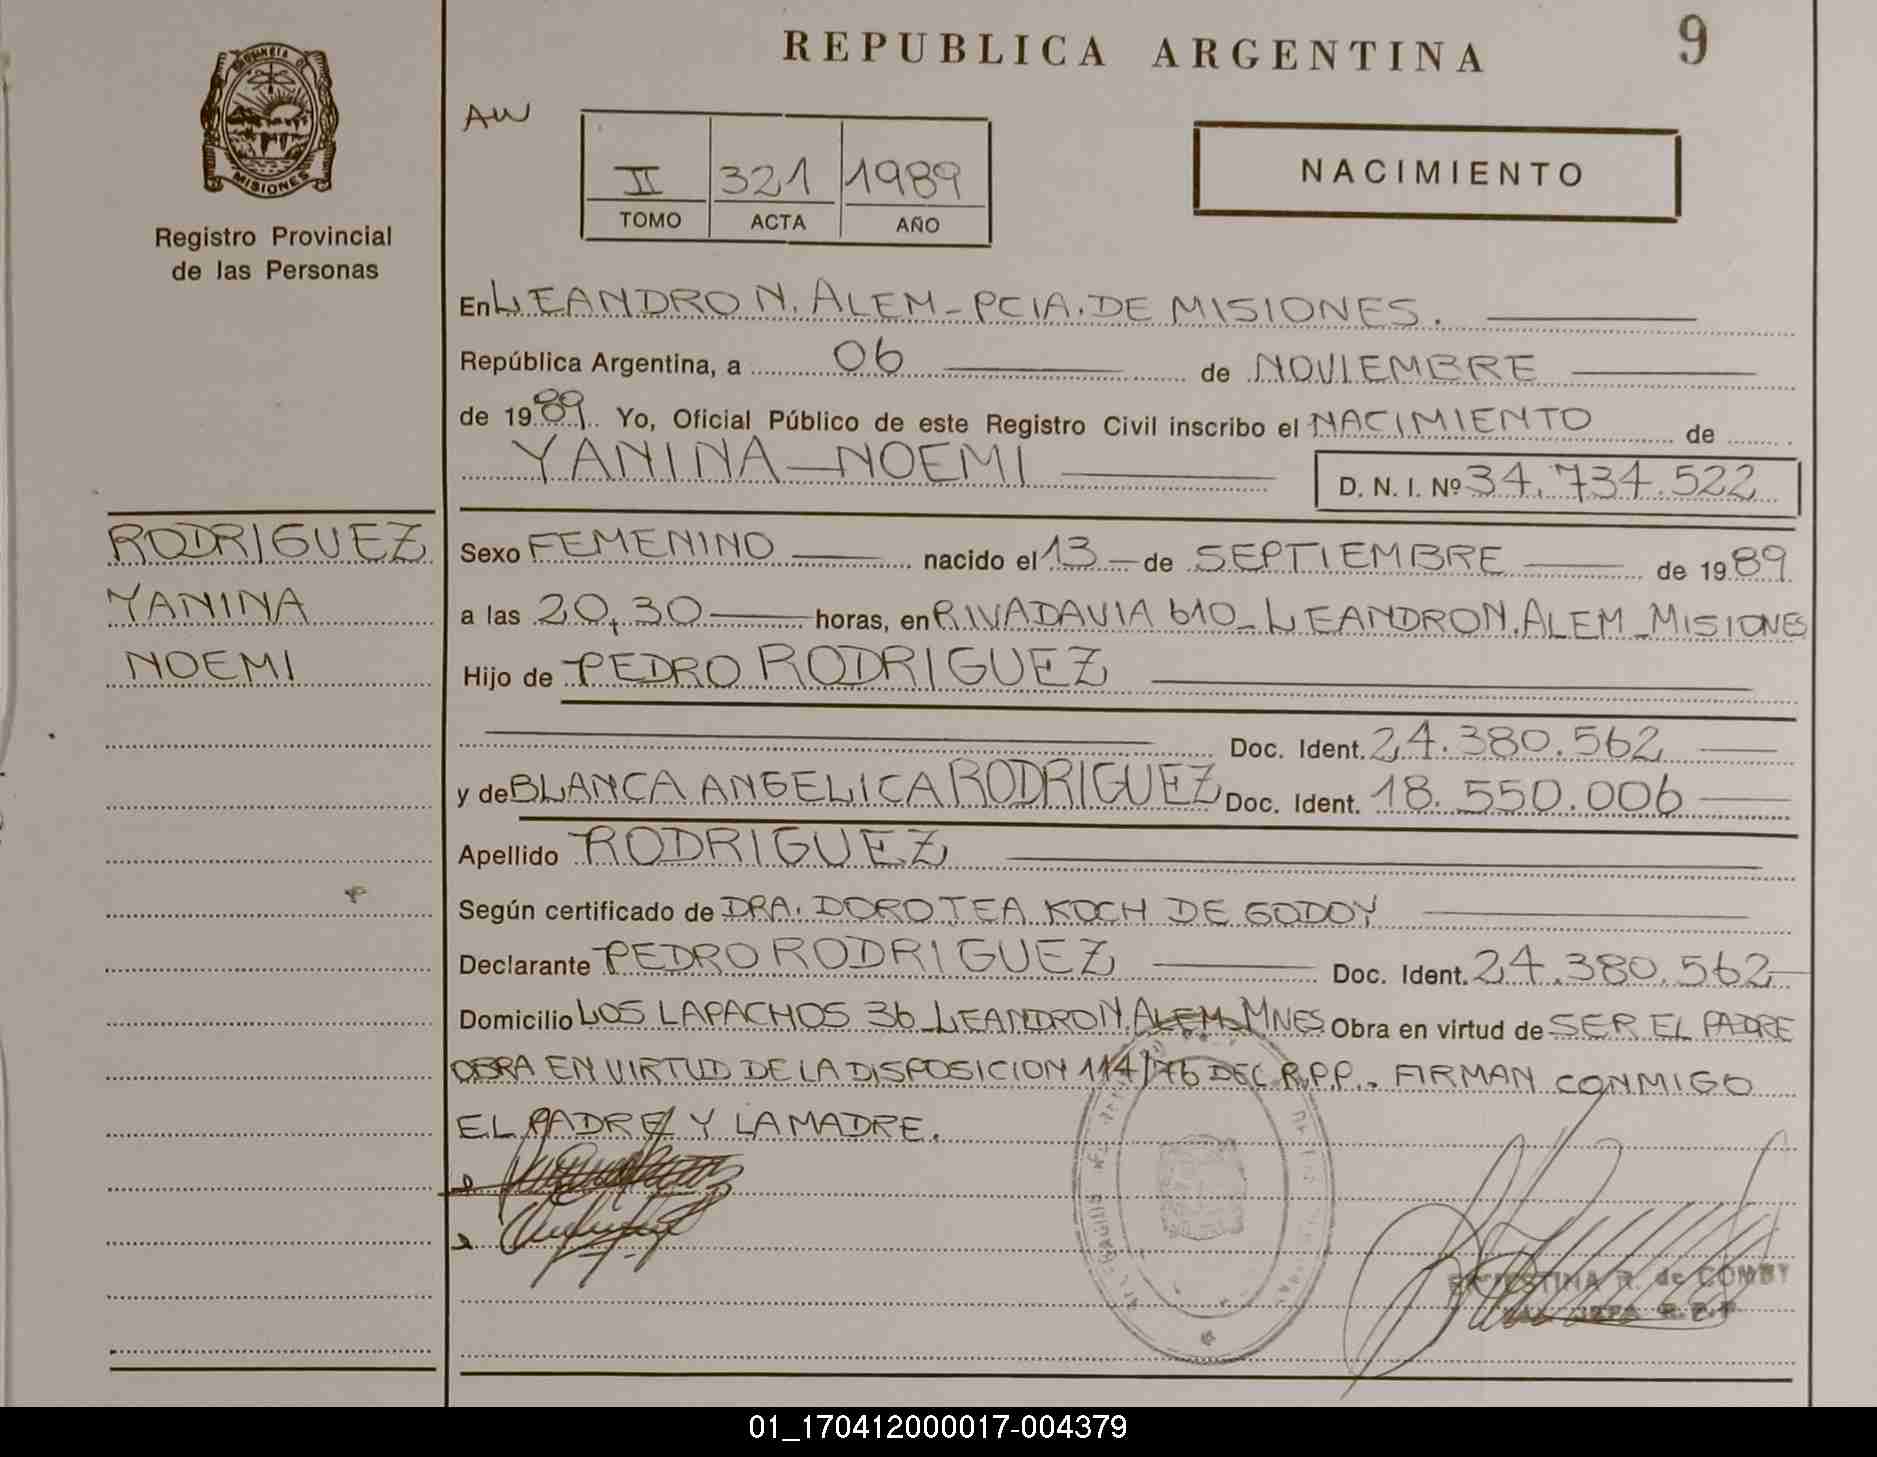 REPUBLICA ARGENTINA
9
PROVINCIA D
MISIONES
Registro Provincial
de las Personas
AW
II 321 1989
TOMO ACTA AÑO
NACIMIENTO
En LEANDRO N. ALEM - PCIA. DE MISIONES.
República Argentina, a 06 de NOVIEMBRE
de 1989. Yo, Oficial Público de este Registro Civil inscribo el NACIMIENTO de
YANINA NOEMI
D. N. I. Nº 34.734.522
RODRIGUEZ
YANINA
NOEMI
Sexo FEMENINO nacido el 13 de SEPTIEMBRE de 1989
a las 20,30 horas, en RIVADAVIA 610 - LEANDRO N. ALEM - MISIONES
Hijo de PEDRO RODRIGUEZ
Doc. Ident. 24.380.562
y de BLANCA ANGELICA RODRIGUEZ Doc. Ident. 18.550.006
Apellido RODRIGUEZ
Según certificado de DRA. DOROTEA KOCH DE GODOY
Declarante PEDRO RODRIGUEZ Doc. Ident. 24.380.562
Domicilio LOS LAPACHOS 36 - LEANDRO N. ALEM - MNES Obra en virtud de SER EL PADRE
OBRA EN VIRTUD DE LA DISPOSICION 114/76 DEL R.P.P.. FIRMAN CONMIGO
EL PADRE Y LA MADRE.
ERNESTINA R. de COMBY
JEFA R.P.P
01_170412000017-004379